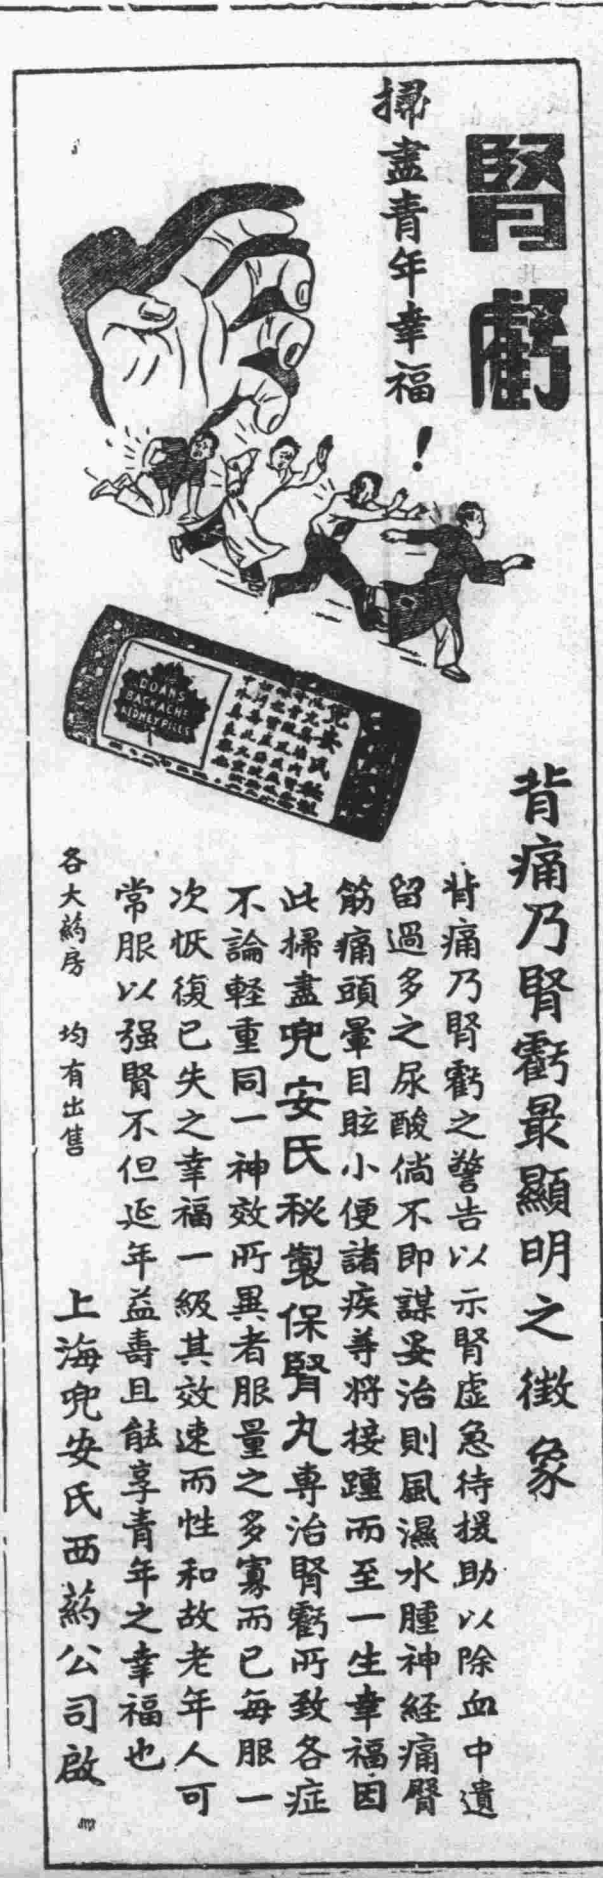 腎虧
掃盡青年幸福！
DOAN'S
BACKACHE
KIDNEY PILLS
兜安氏秘製
背痛乃腎虧最顯明之徵象
背痛乃腎虧之警告以示腎虛急待援助以除血中遺
留過多之尿酸倘不即謀妥治則風濕水腫神經痛腎
筋痛頭暈目眩小便諸疾等將接踵而至一生幸福因
此掃盡兜安氏秘製保腎丸専治腎虧所致各症
不論軽重同一神效所異者服量之多寡而已每服一
次恢復已失之幸福一級其效速而性和故老年人可
常服以强腎不但延年益壽且能享青年之幸福也
各大葯房　均有出售
上海兜安氏西葯公司啟